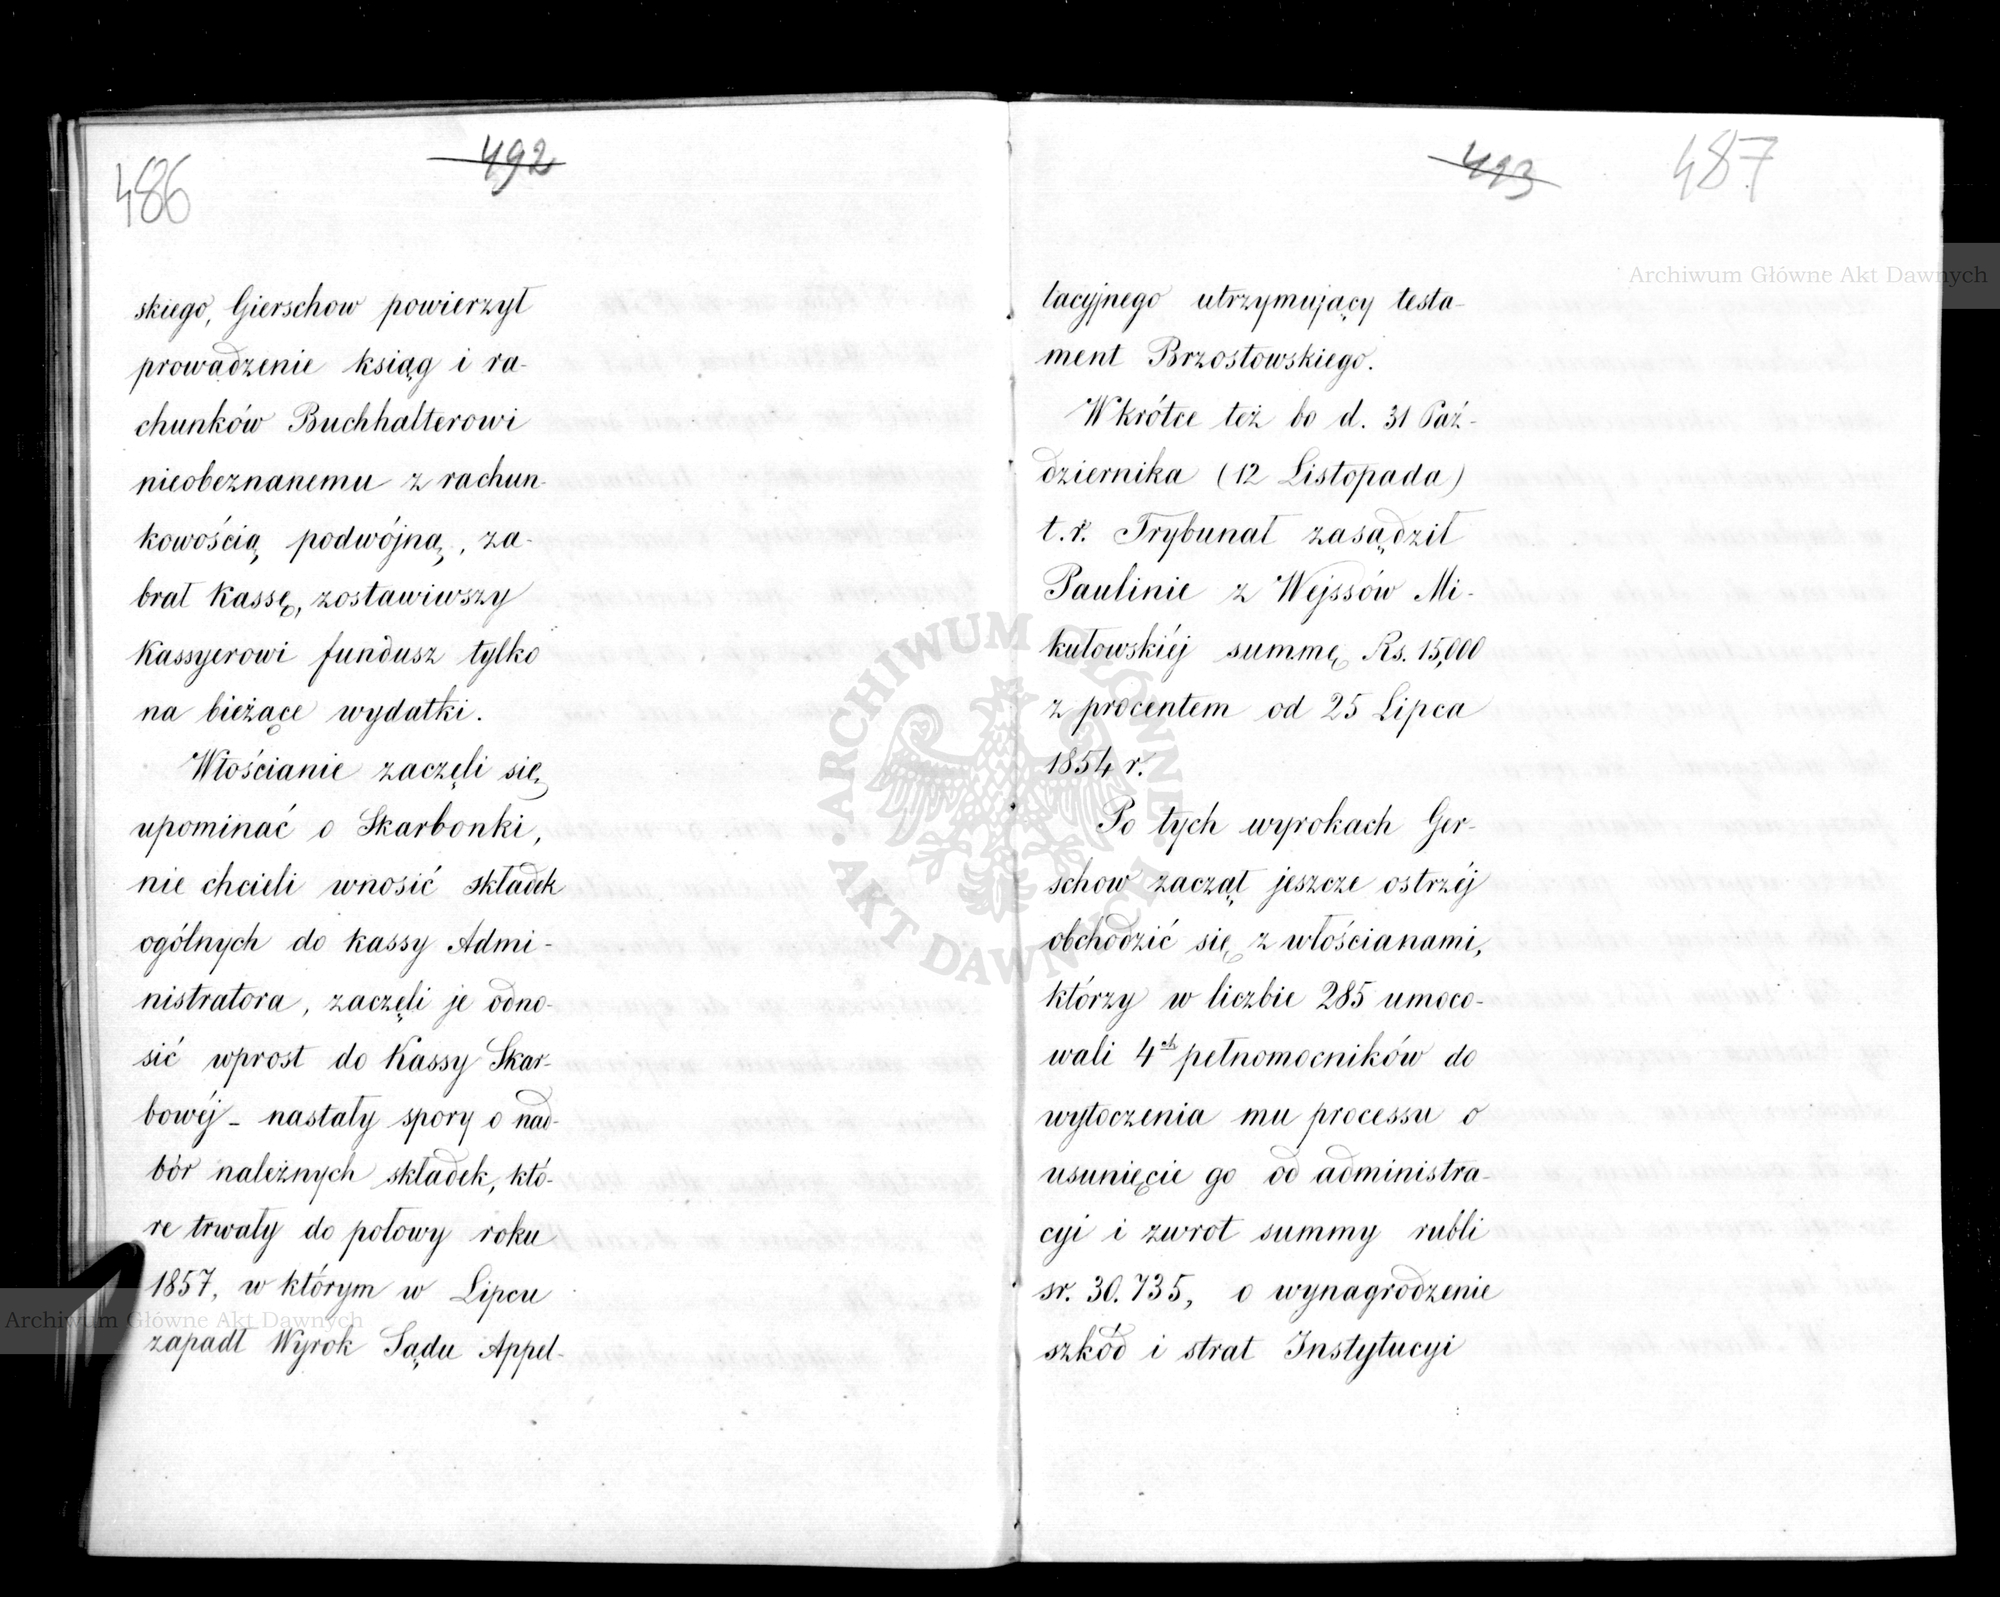 486
492
skiego, Gierschow powierzył
prowadzenie ksiąg i ra-
chunków Buchhalterowi
nieobeznanemu z rachun-
kowością podwójną, za-
brał Kassę, zostawiwszy
Kassyerowi fundusz tylko
na bieżące wydatki.
Włościanie zaczęli się
upominać o Skarbonki,
nie chcieli wnosić składek
ogólnych do kassy Admi-
nistratora, zaczęli je odno-
sić wprost do Kassy Skar-
bowéj - nastały spory o nad-
bór należnych składek, któ-
re trwały do połowy roku
1857, w którym w Lipcu
zapadł Wyrok Sądu Appel-
493
487
lacyjnego utrzymujący testa-
ment Brzostowskiego.
Wkrótce też bo d. 31 Paź-
dziernika (12 Listopada)
t.r. Trybunał zasądził
Paulinie z Wejssów Mi-
kułowskiéj summę Rs. 15,000
z procentem od 25 Lipca
1854 r.
Po tych wyrokach Ger-
schow zaczął jeszcze ostrzéj
obchodzić się z włościanami,
którzy w liczbie 285 umoco-
wali 4ch pełnomocników do
wytoczenia mu processu o
usunięcie go od administra-
cyi i zwrot summy rubli
sr. 30.735, o wynagrodzenie
szkód i strat Instytucyi
Archiwum Główne Akt Dawnych
Archiwum Główne Akt Dawnych
ARCHIWUM GŁÓWNE AKT DAWNYCH